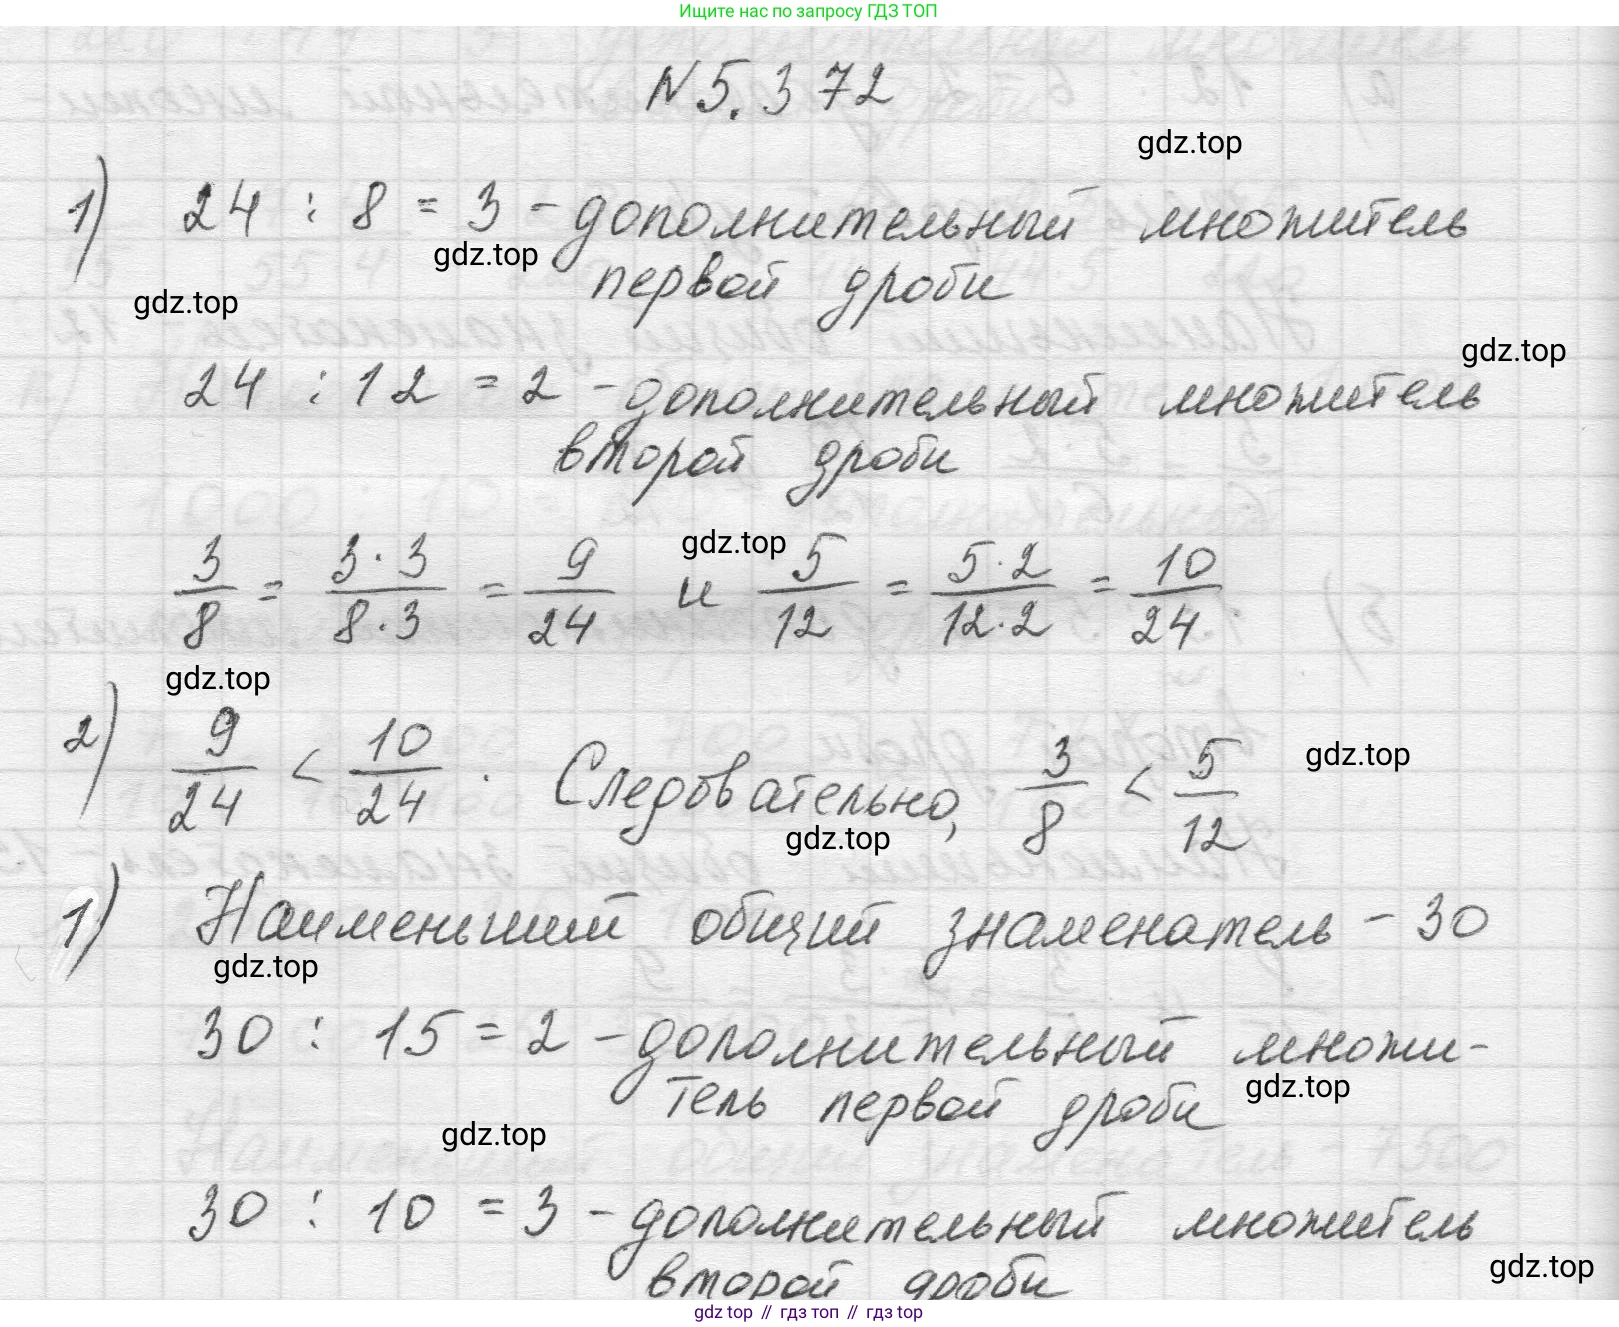 Ищите нас по запросу ГДЗ ТОП
N 5.372
gdz.top
1) 24 : 8 = 3 - дополнительный множитель
gdz.top
первой дроби
gdz.top
gdz.top
24 : 12 = 2 - дополнительный множитель
второй дроби
gdz.top
3/8 = 3·3/8·3 = 9/24 и 5/12 = 5·2/12·2 = 10/24.
gdz.top
2) 9/24 < 10/24. Следовательно, 3/8 < 5/12
gdz.top
gdz.top
1) Наименьший общий знаменатель - 30
gdz.top
30 : 15 = 2 - дополнительный множи-
gdz.top
тель первой дроби
gdz.top
30 : 10 = 3 - дополнительный множитель
gdz.top
второй дроби
gdz top // гдз топ // гдз top